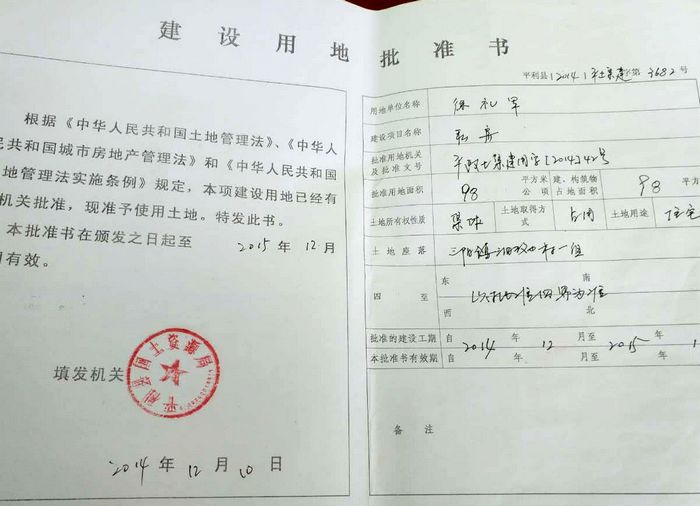 建设用地批准书
根据《中华人民共和国土地管理法》、《中华人
民共和国城市房地产管理法》和《中华人民共和国
地管理法实施条例》规定，本项建设用地已经有
机关批准，现准予使用土地。特发此书。
本批准书在颁发之日起至 2015 年 12 月
有效。
平利县国土资源局
填发机关
2014 年 12 月 10 日
平利县（2014）平土集建字第 3682 号
用地单位名称 徐礼军
建设项目名称
批准用地机关及批准文号 平政土集建用字[2014]42号
批准用地面积 98 平方米 公项 建、构筑物占地面积 98 平方
土地所有权性质 集体 土地取得方式 占用 土地用途 住宅
土地座落 三阳镇 村一组
四至 东 南 西 北
以 批准四界为准
批准的建设工期 自 2014 年 12 月至 2015 年 1
本批准书有效期 自 年 月至 年
备注